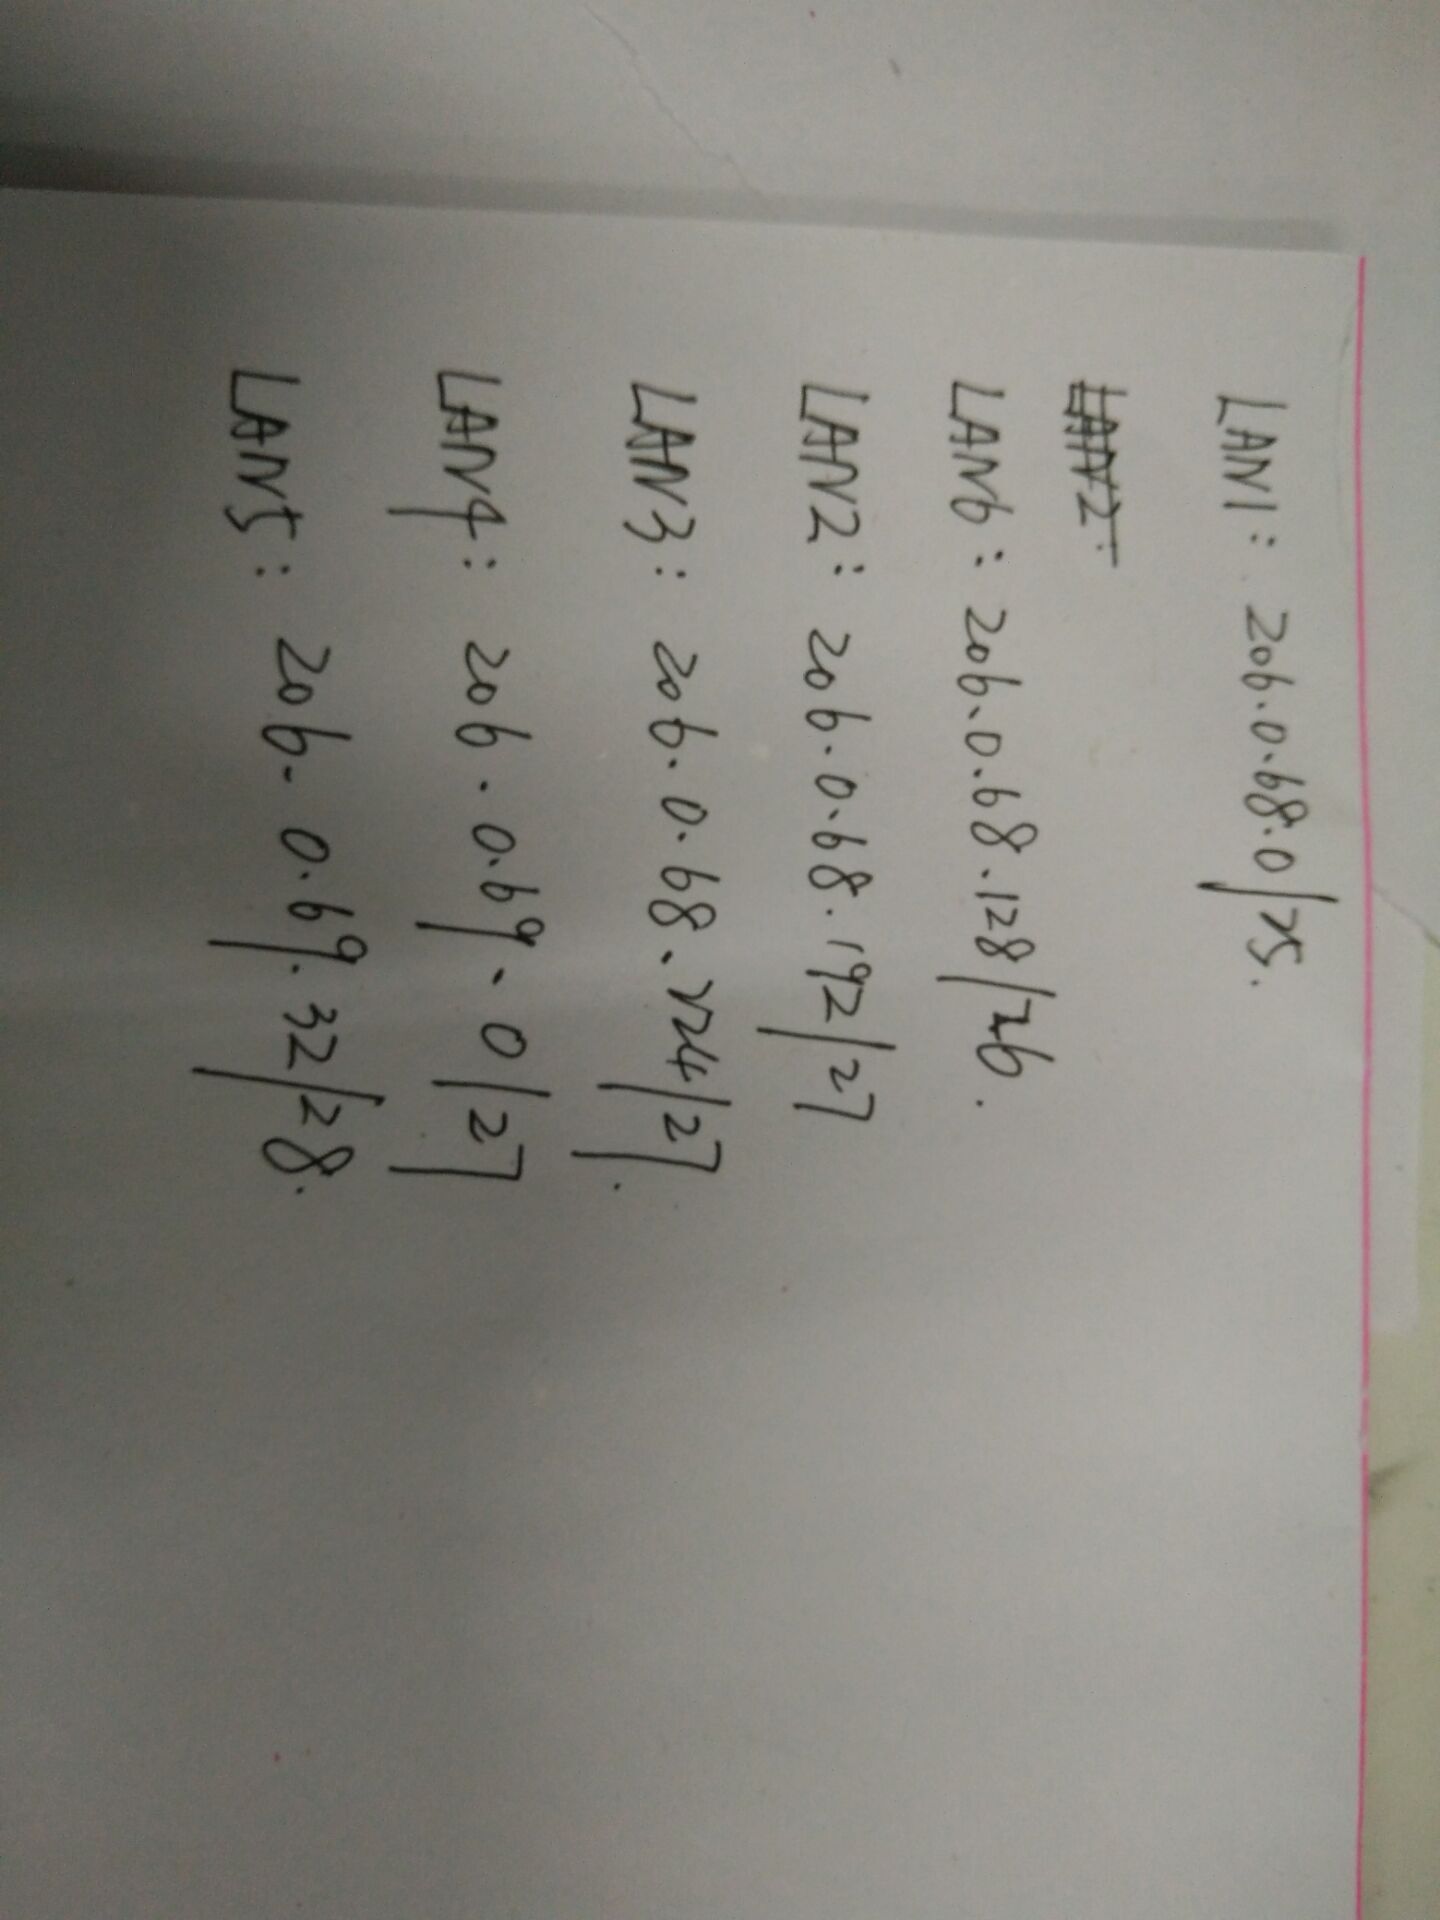 LAN1: 206.0.68.0/25.
LAN2:
LAN6: 206.0.68.128/26.
LAN2: 206.0.68.192/27
LAN3: 206.0.68.224/27.
LAN4: 206.0.69.0/27
LAN5: 206.0.69.32/28.